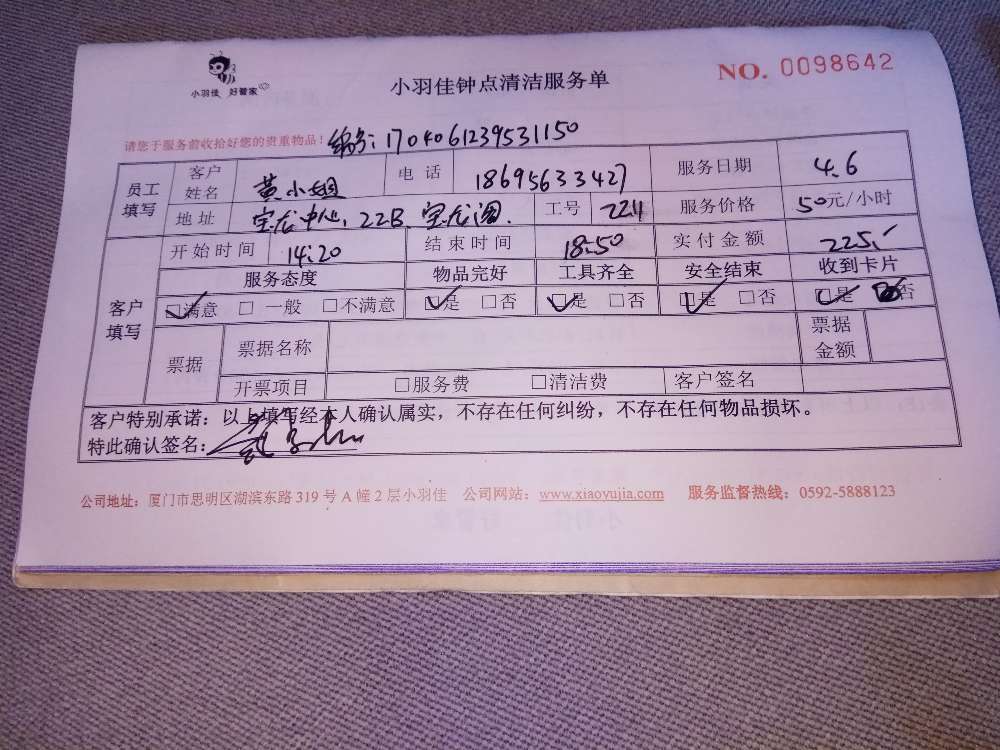 小羽佳 好管家
小羽佳钟点清洁服务单
NO. 0098642
请您于服务前收拾好您的贵重物品！ 编号：1704061239531150
员工填写 客户姓名 黄小姐 电话 18695633427 服务日期 4.6
地址 宝龙中心，22B. 工号 2211 服务价格 50元/小时
客户填写 开始时间 14:20 结束时间 18:50 实付金额 225.
服务态度 物品完好 工具齐全 安全结束 收到卡片
☑满意 □一般 □不满意 ☑是 □否 ☑是 □否 ☑是 □否 ☑是 否
票据 票据名称 票据金额
开票项目 □服务费 □清洁费 客户签名
客户特别承诺：以上填写经本人确认属实，不存在任何纠纷，不存在任何物品损坏。
特此确认签名：
公司地址：厦门市思明区湖滨东路 319 号 A 幢 2 层小羽佳 公司网站：www.xiaoyujia.com 服务监督热线：0592-5888123